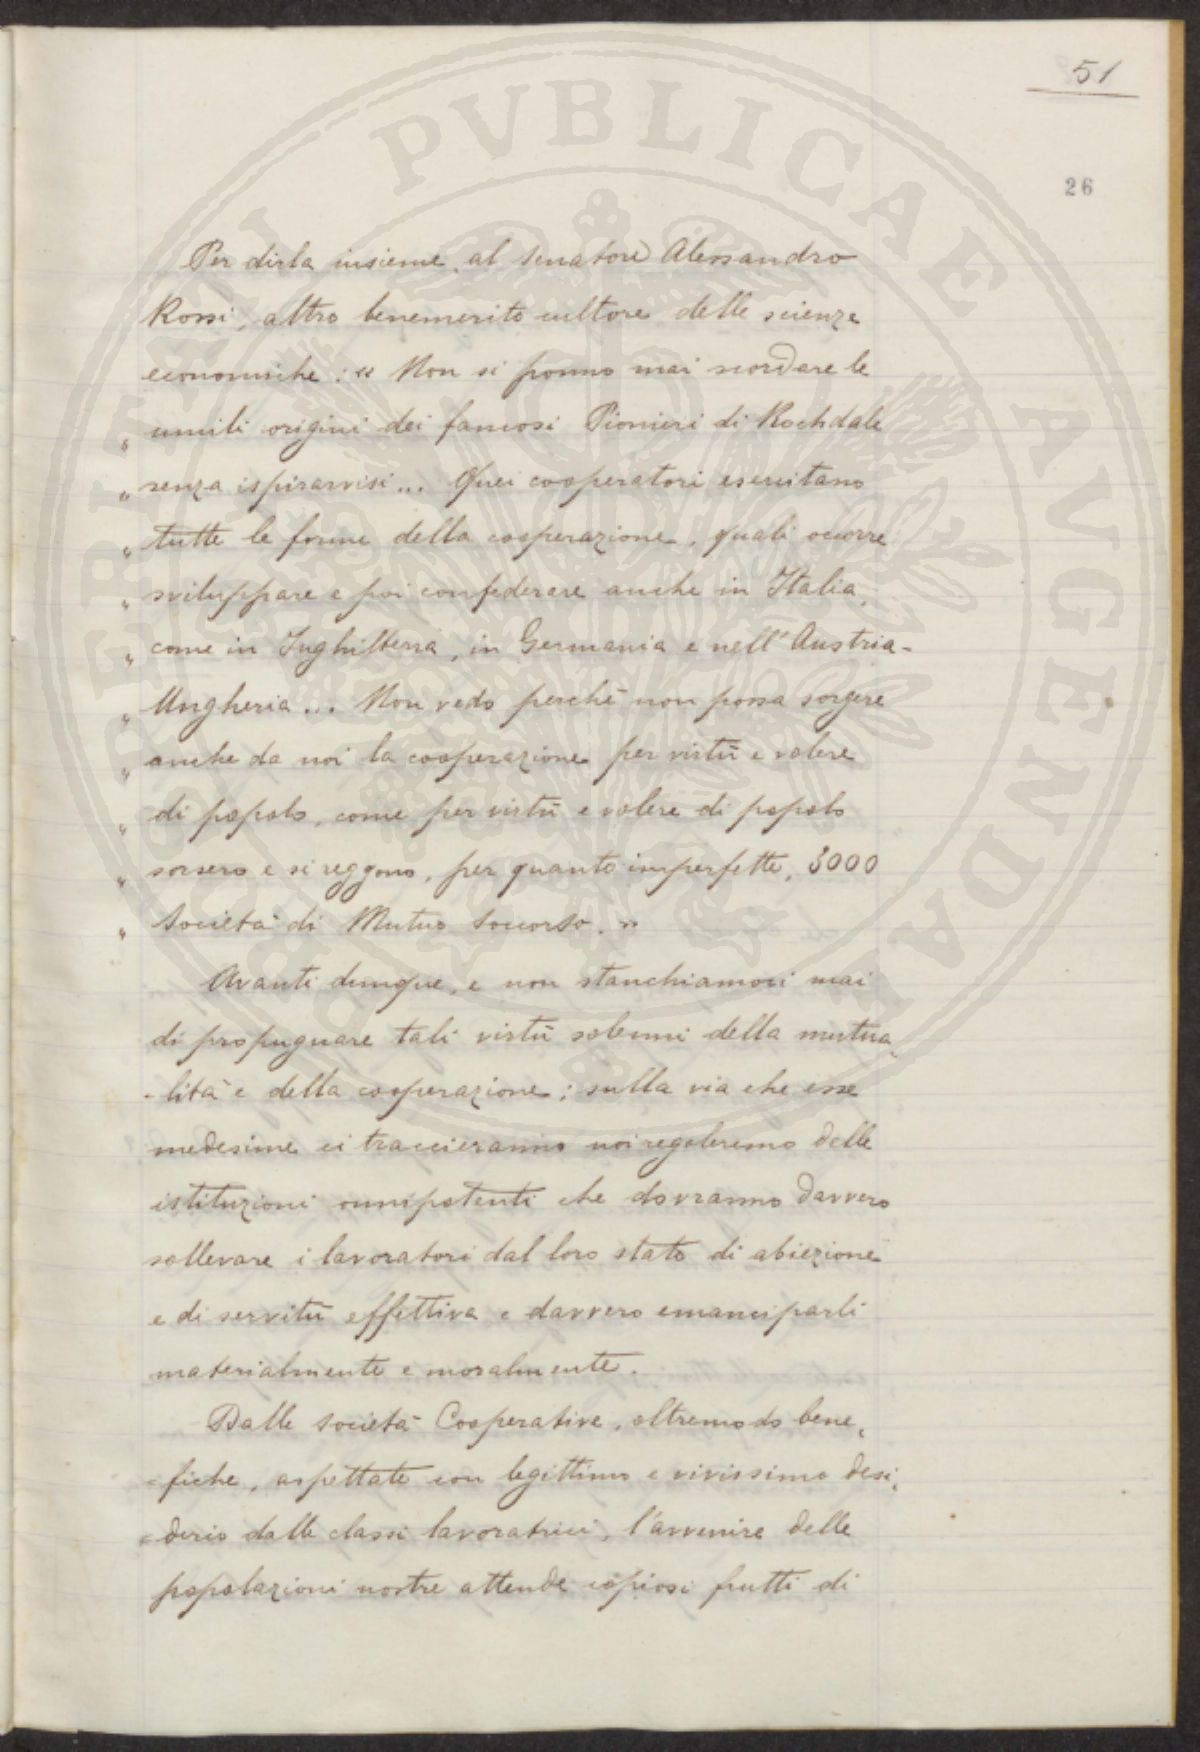 51
26
Per dirla insieme al Senatore Alessandro
Rossi, altro benemerito cultore delle scienze
economiche: « Non si ponno mai scordare le
" umili origini dei famosi Pionieri di Rochdale
" senza ispirarvisi... Quei cooperatori esercitano
" tutte le forme della cooperazione, quali occorre
" sviluppare e poi confederare anche in Italia,
" come in Inghilterra, in Germania e nell'Austria-
" Ungheria... Non vedo perchè non possa sorgere
" anche da noi la cooperazione per virtù e volere
" di popolo, come per virtù e volere di popolo
" sorsero e si reggono, per quanto imperfette, 3000
" Società di Mutuo Soccorso. »
Avanti dunque, e non stanchiamoci mai
di propugnare tali virtù solenni della mutua-
-lità e della cooperazione; sulla via che esse
medesime ci traccieranno noi regoleremo delle
istituzioni onnipotenti che dovranno davvero
sollevare i lavoratori dal loro stato di abiezione
e di servitù effettiva e davvero emanciparli
materialmente e moralmente.
Dalle Società Cooperative, oltremodo bene,
=fiche, aspettate con legittimo e vivissimo desi,
=derio dalle classi lavoratrici, l'avvenire delle
popolazioni nostre attende copiosi frutti di
PVBLICAE AVGENDAE PROSPERITATI